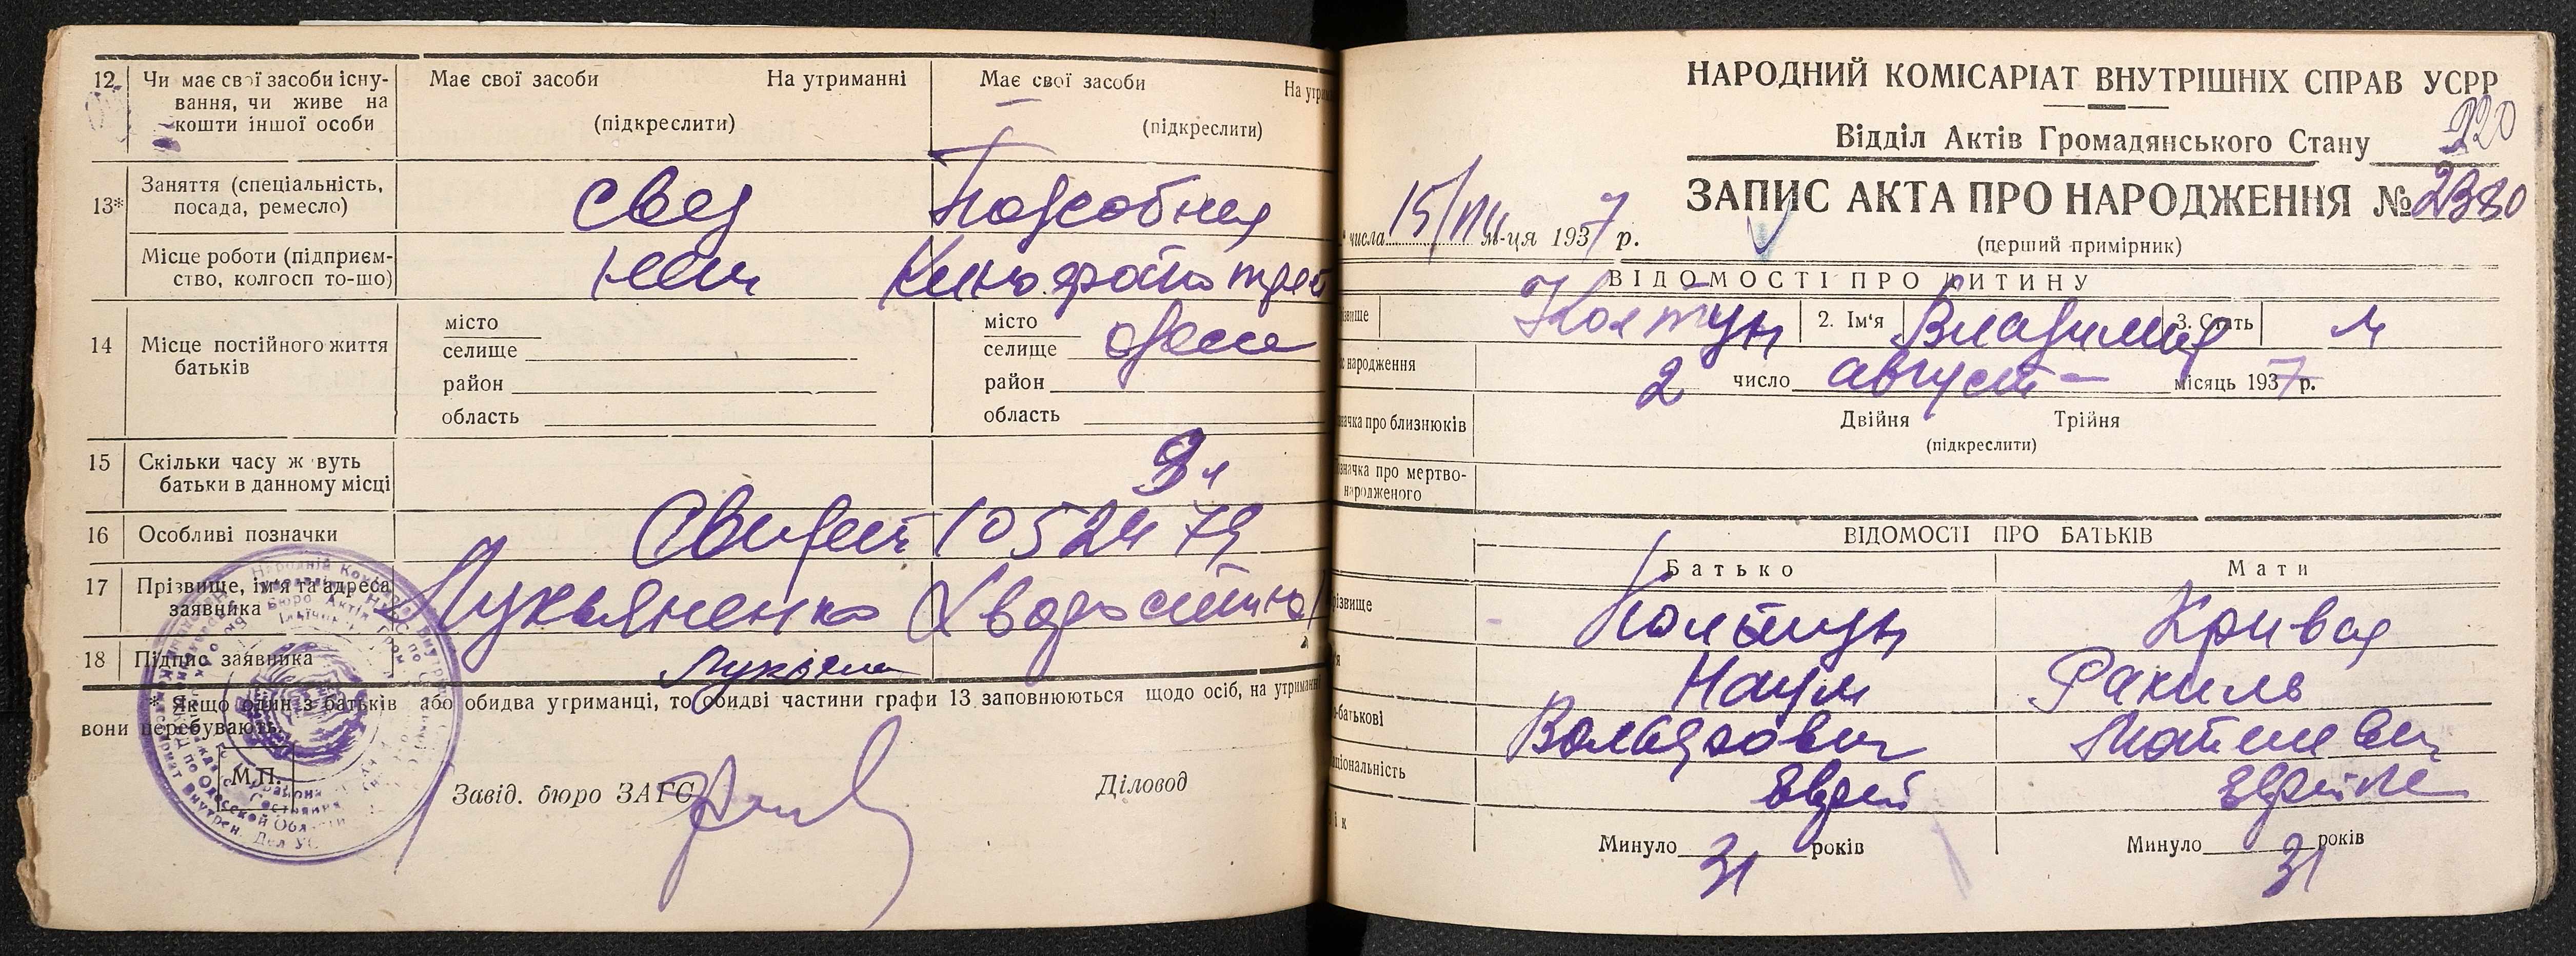 12
Чи має свої засоби існу-
вання, чи живе на
кошти іншої особи
Має свої засоби На утриманні
(підкреслити)
Має свої засоби На утрим
(підкреслити)
13*
Заняття (спеціальність,
посада, ремесло)
Місце роботи (підприєм-
ство, колгосп то-що)
свед
нет
Подсобная
Кинофото трест
14
Місце постійного життя
батьків
місто
селище
район
область
місто
селище Одесса
район
область
15
Скільки часу ж вуть
батьки в данному місці
9 л
16
Особливі позначки
Свидет 1052479
17
Прізвище, ім'я та адреса
заявника
Лукьяненко
18
Підпис заявника
Лукьяне
* Якщо один з батьків або обидва утриманці, то обидві частини графи 13 заповнюються щодо осіб, на утриманні
вони перебувають.
М.П.
Завід. бюро ЗАГС
Діловод
НАРОДНИЙ КОМІСАРІАТ ВНУТРІШНІХ СПРАВ УСРР
Відділ Актів Громадянського Стану
ЗАПИС АКТА ПРО НАРОДЖЕННЯ № 2380
числа 15/VIII м-ця 1937 р.
(перший примірник)
ВІДОМОСТІ ПРО ДИТИНУ
звище Колтун 2. Ім'я Владимир 3. Стать м
народження 2 число август місяць 1937 р.
начка про близнюків
Двійня Трійня
(підкреслити)
начка про мертво-
народженого
ВІДОМОСТІ ПРО БАТЬКІВ
Батько Мати
ізвище Колтун Кривая
Наум Рахиль
-батькові
Мотелевн
ціональність Еврей Еврейка
ік
Минуло 31 років
Минуло 31 років